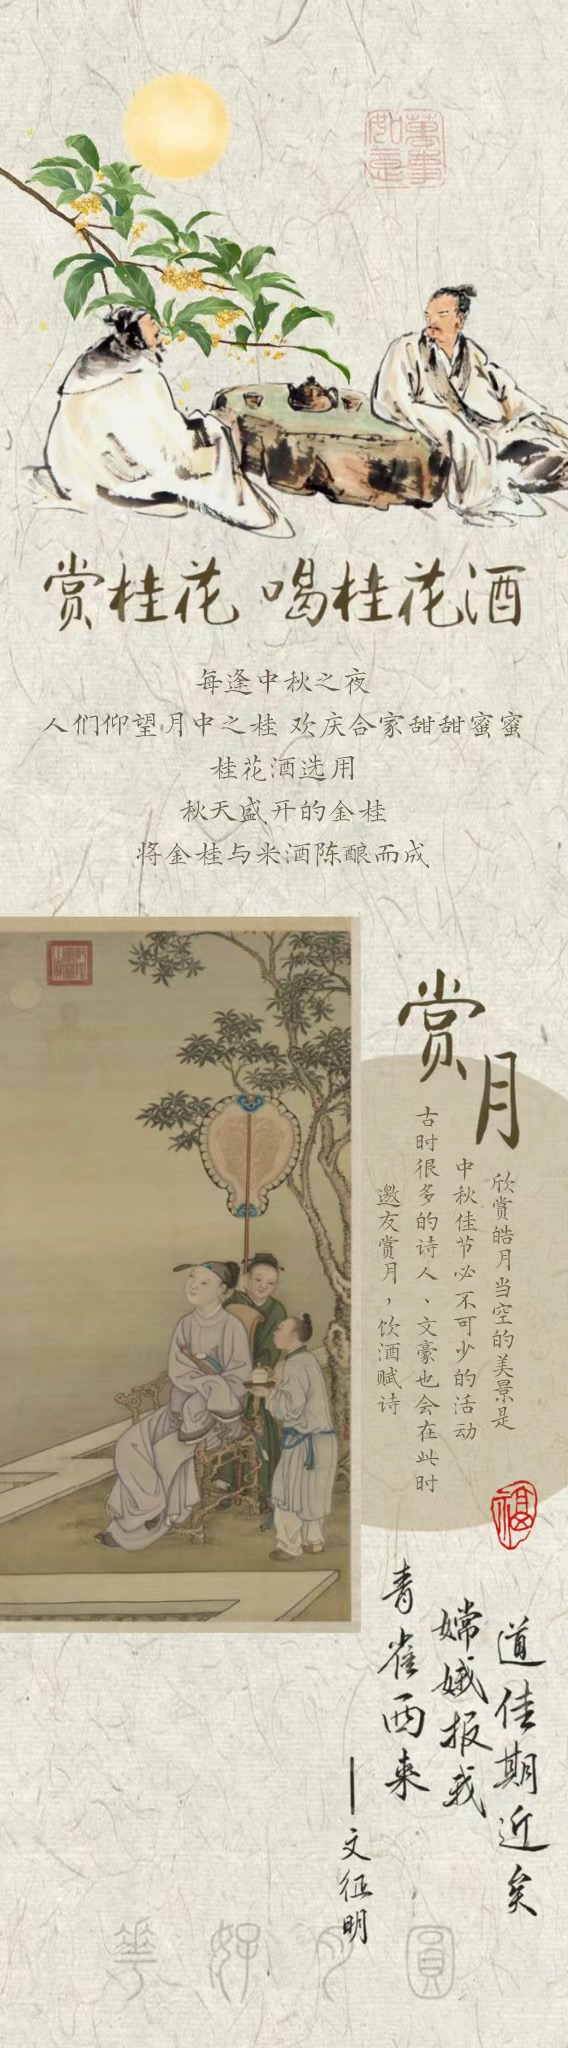 萬事如意
赏桂花 喝桂花酒
每逢中秋之夜
人们仰望月中之桂 欢庆合家甜甜蜜蜜
桂花酒选用
秋天盛开的金桂
将金桂与米酒陈酿而成
赏月
欣赏皓月当空的美景是
中秋佳节必不可少的活动
古时很多的诗人、文豪也会在此时
邀友赏月，饮酒赋诗
福
青雀西来
嫦娥报我
道佳期近矣
——文征明
花好月圓